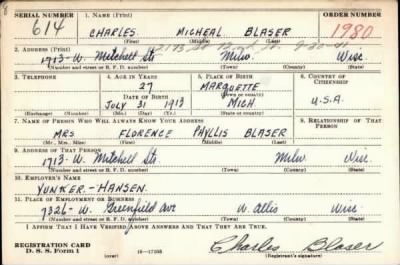 SERIAL NUMBER 1. NAME (Print) ORDER NUMBER
614 CHARLES MICHEAL BLASER 1980
(First) (Middle) (Last)
2. ADDRESS (Print)
1713-W. Mitchell Sts. Milw. Wisc.
(Number and street or R. F. D. number) (Town) (County) (State)
3. TELEPHONE 4. AGE IN YEARS 5. PLACE OF BIRTH 6. COUNTRY OF CITIZENSHIP
27 MARQUETTE
DATE OF BIRTH (Town or county)
JULY 31 1913 MICH. U.S.A.
(Exchange) (Number) (Mo.) (Day) (Yr.) (State or country)
7. NAME OF PERSON WHO WILL ALWAYS KNOW YOUR ADDRESS 8. RELATIONSHIP OF THAT PERSON
MRS FLORENCE PHYLLIS BLASER
(Mr., Mrs., Miss) (First) (Middle) (Last)
9. ADDRESS OF THAT PERSON
1713-W. Mitchell Sts. Milw Wisc.
(Number and street or R. F. D. number) (Town) (County) (State)
10. EMPLOYER'S NAME
YUNKER-HANSEN.
11. PLACE OF EMPLOYMENT OR BUSINESS
7326-W. Greenfield Ave W. Allis Wisc.
(Number and street or R. F. D. number) (Town) (County) (State)
I AFFIRM THAT I HAVE VERIFIED ABOVE ANSWERS AND THAT THEY ARE TRUE.
REGISTRATION CARD
D. S. S. Form 1 (over) 16-17105 Charles Blaser
(Registrant's signature)